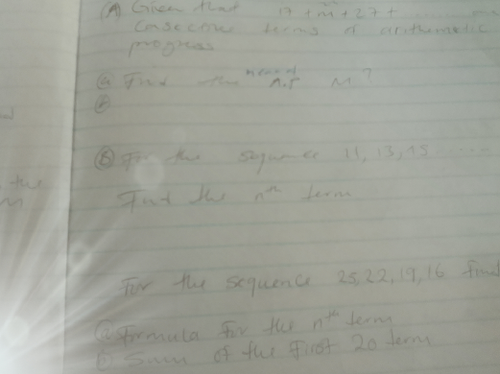 (A) Given that 17 + m + 27 + ......
Consective terms of arithmetic
progress
(a) Find the mean of A.P M?
(b)
(B) For the sequence 11, 13, 15 ......
Find the nth term
For the sequence 25, 22, 19, 16 find
(a) Formula for the nth term
(b) Sum of the first 20 term
the